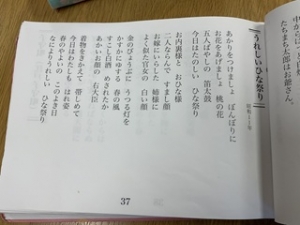 たちまち太郎はお爺さん。
うれしいひな祭り
あかりをつけましょ　ぼんぼりに
お花をあげましょ　桃の花
五人ばやしの　笛太鼓
今日はたのしい　ひな祭り
お内裏様と　おひな様
二人ならんで　すまし顔
お嫁にいらした　姉様に
よく似た官女の　白い顔
金のびょうぶに　うつる灯を
かすかにゆする　春の風
すこし白酒　めされたか
あかいお顔の　右大臣
着物をきかえて　帯しめて
今日はわたしも　はれ姿
春のやよいの　このよき日
なによりうれしい　ひな祭り
37